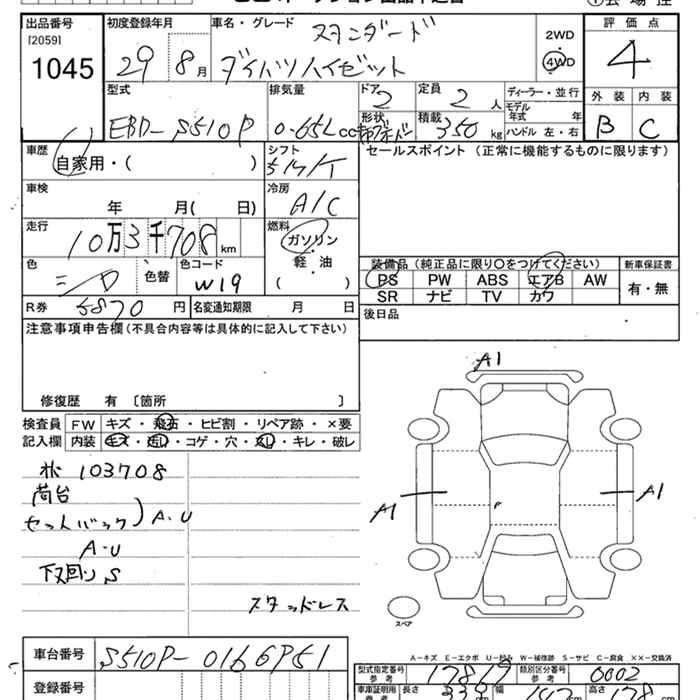 出品番号 初度登録年月 車名・グレード スタンダード
[2059] 2WD 評価点
1045 29 8月 ダイハツハイゼット 4WD 4
型式 排気量 ドア 定員 ディーラー・並行 外装 内装
EBD-S510P 0.65Lcc 2 2人 モデル年式 年 B C
形状 積載 350kg ハンドル 左・右
車歴 シフト セールスポイント (正常に機能するものに限ります)
自家用・( )
車検 冷房
年 月( 日) A/C
走行 燃料
10万3千708km ガソリン
軽・油
( )
色 色替 色コード W19
装備品(純正品に限り○をつけてください) 新車保証書
PS PW ABS エアB AW 有・無
SR ナビ TV カワ
R券 5870円 名変通知期限 月 日 後日品
注意事項申告欄(不具合内容等は具体的に記入して下さい)
修復歴 有〔箇所 〕
検査員 FW キズ・飛石・ヒビ割・リペア跡・×要
記入欄 内装 キズ・汚レ・コゲ・穴・スレ・キレ・破レ
103708
荷台
セットバック A-U
A-U
下回りS
スタッドレス
A1
A1
A1
スペア
A-キズ E-エクボ U-凹み W-補修跡 S-サビ C-腐食 ××-交換済
車台番号 S510P-0166951
登録番号
型式指定番号 参考 17869 類別区分番号 参考 0002
車庫証明用 参考 長さ 339 幅 147 高さ 178